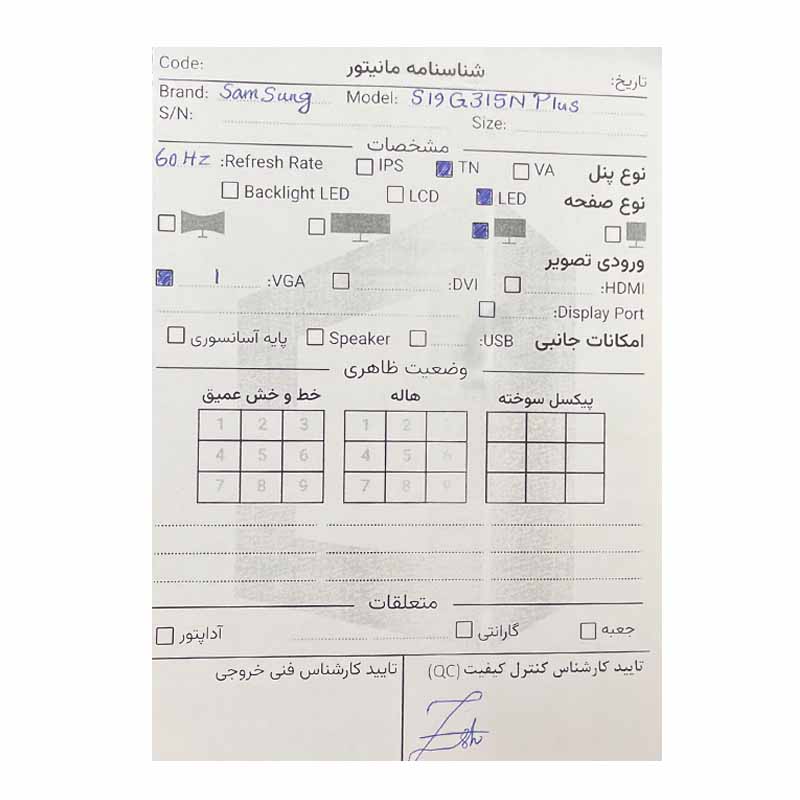 Code: شناسنامه مانیتور تاریخ:
Brand: SamSung Model: S19G315N Plus
S/N: Size:
مشخصات
نوع پنل VA TN IPS Refresh Rate: 60 HZ
نوع صفحه LED LCD Backlight LED
ورودی تصویر
HDMI: DVI: VGA: 1
Display Port:
امکانات جانبی USB: Speaker پایه آسانسوری
وضعیت ظاهری
پیکسل سوخته هاله خط و خش عمیق
1 2 1 2 3
4 5 6 4 5 6
7 8 9 7 8 9
متعلقات
جعبه گارانتی آداپتور
تایید کارشناس کنترل کیفیت (QC) تایید کارشناس فنی خروجی